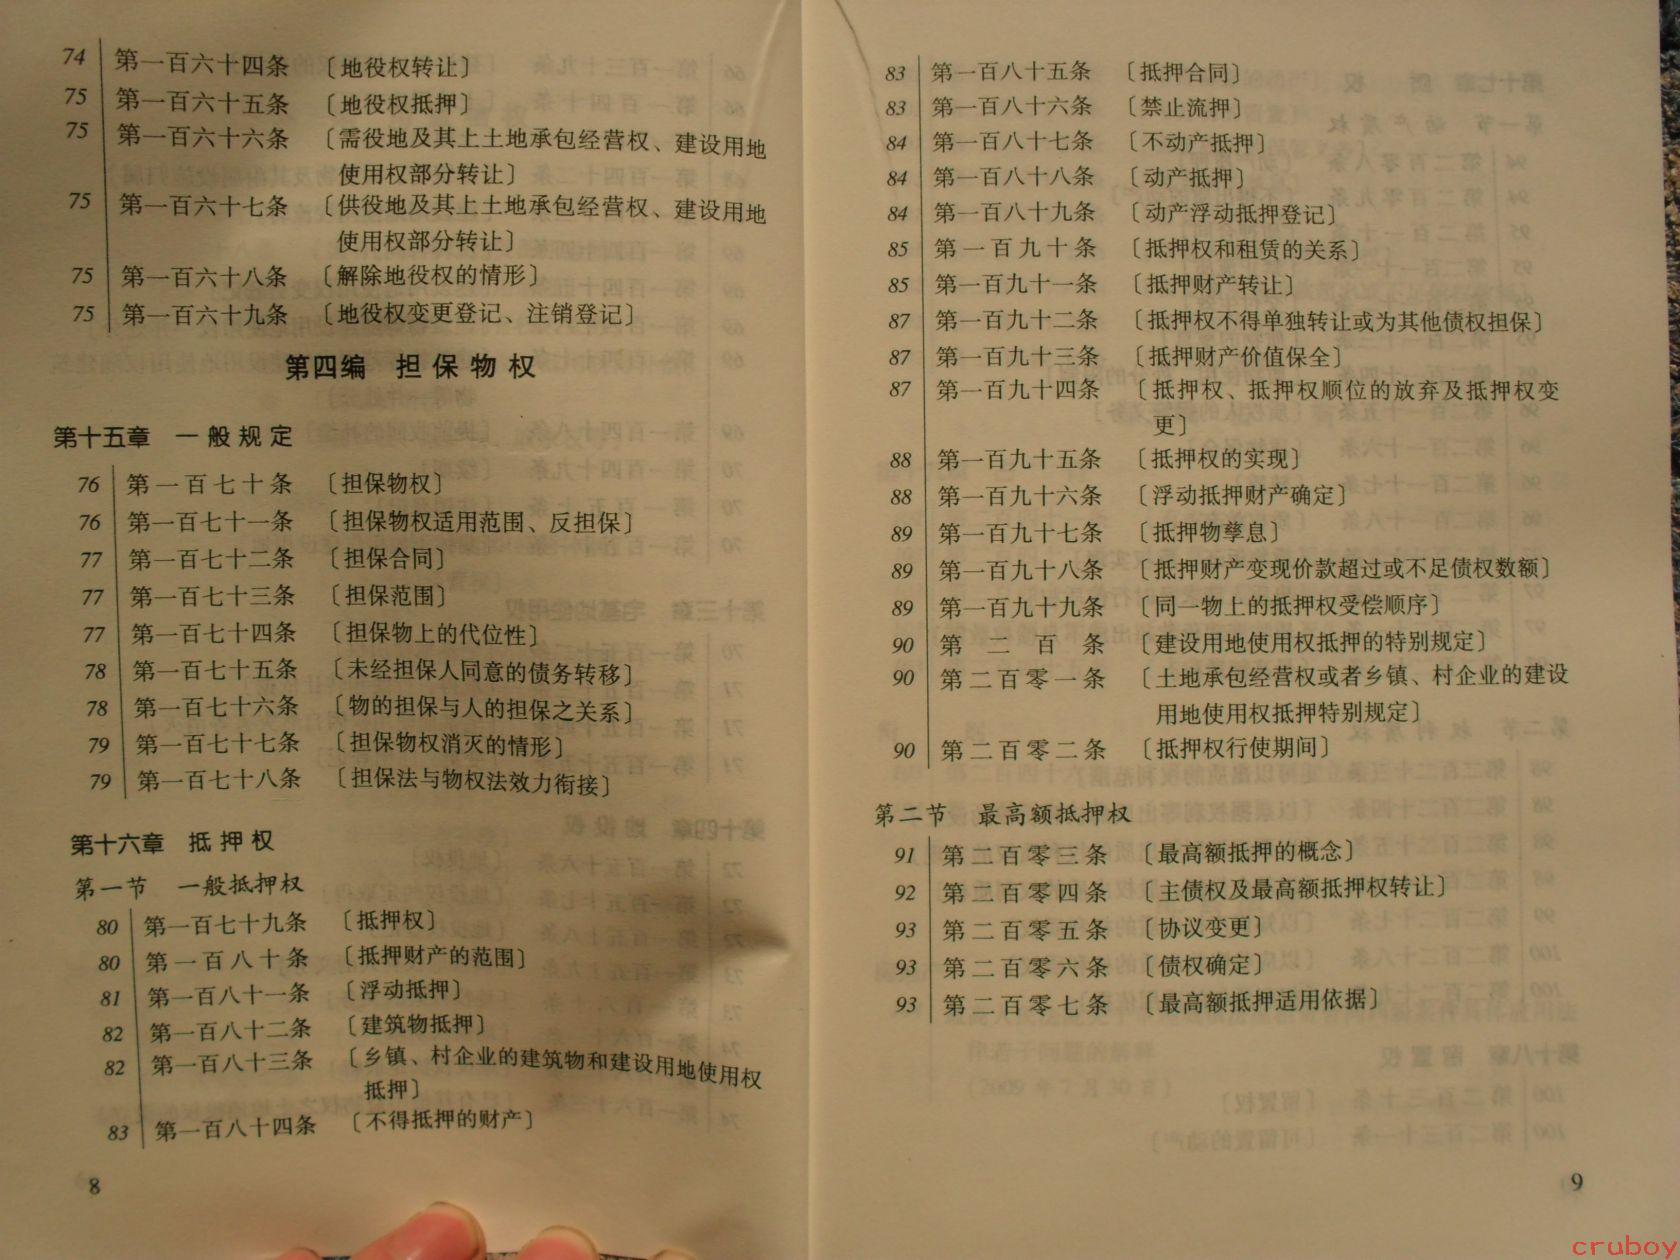 74 第一百六十四条 〔地役权转让〕
75 第一百六十五条 〔地役权抵押〕
75 第一百六十六条 〔需役地及其上土地承包经营权、建设用地
使用权部分转让〕
75 第一百六十七条 〔供役地及其上土地承包经营权、建设用地
使用权部分转让〕
75 第一百六十八条 〔解除地役权的情形〕
75 第一百六十九条 〔地役权变更登记、注销登记〕
第四编 担保物权
第十五章 一般规定
76 第一百七十条 〔担保物权〕
76 第一百七十一条 〔担保物权适用范围、反担保〕
77 第一百七十二条 〔担保合同〕
77 第一百七十三条 〔担保范围〕
77 第一百七十四条 〔担保物上的代位性〕
78 第一百七十五条 〔未经担保人同意的债务转移〕
78 第一百七十六条 〔物的担保与人的担保之关系〕
79 第一百七十七条 〔担保物权消灭的情形〕
79 第一百七十八条 〔担保法与物权法效力衔接〕
第十六章 抵押权
第一节 一般抵押权
80 第一百七十九条 〔抵押权〕
80 第一百八十条 〔抵押财产的范围〕
81 第一百八十一条 〔浮动抵押〕
82 第一百八十二条 〔建筑物抵押〕
82 第一百八十三条 〔乡镇、村企业的建筑物和建设用地使用权
抵押〕
83 第一百八十四条 〔不得抵押的财产〕
8
83 第一百八十五条 〔抵押合同〕
83 第一百八十六条 〔禁止流押〕
84 第一百八十七条 〔不动产抵押〕
84 第一百八十八条 〔动产抵押〕
84 第一百八十九条 〔动产浮动抵押登记〕
85 第一百九十条 〔抵押权和租赁的关系〕
85 第一百九十一条 〔抵押财产转让〕
87 第一百九十二条 〔抵押权不得单独转让或为其他债权担保〕
87 第一百九十三条 〔抵押财产价值保全〕
87 第一百九十四条 〔抵押权、抵押权顺位的放弃及抵押权变
更〕
88 第一百九十五条 〔抵押权的实现〕
88 第一百九十六条 〔浮动抵押财产确定〕
89 第一百九十七条 〔抵押物孳息〕
89 第一百九十八条 〔抵押财产变现价款超过或不足债权数额〕
89 第一百九十九条 〔同一物上的抵押权受偿顺序〕
90 第二百条 〔建设用地使用权抵押的特别规定〕
90 第二百零一条 〔土地承包经营权或者乡镇、村企业的建设
用地使用权抵押特别规定〕
90 第二百零二条 〔抵押权行使期间〕
第二节 最高额抵押权
91 第二百零三条 〔最高额抵押的概念〕
92 第二百零四条 〔主债权及最高额抵押权转让〕
93 第二百零五条 〔协议变更〕
93 第二百零六条 〔债权确定〕
93 第二百零七条 〔最高额抵押适用依据〕
9
cruboy